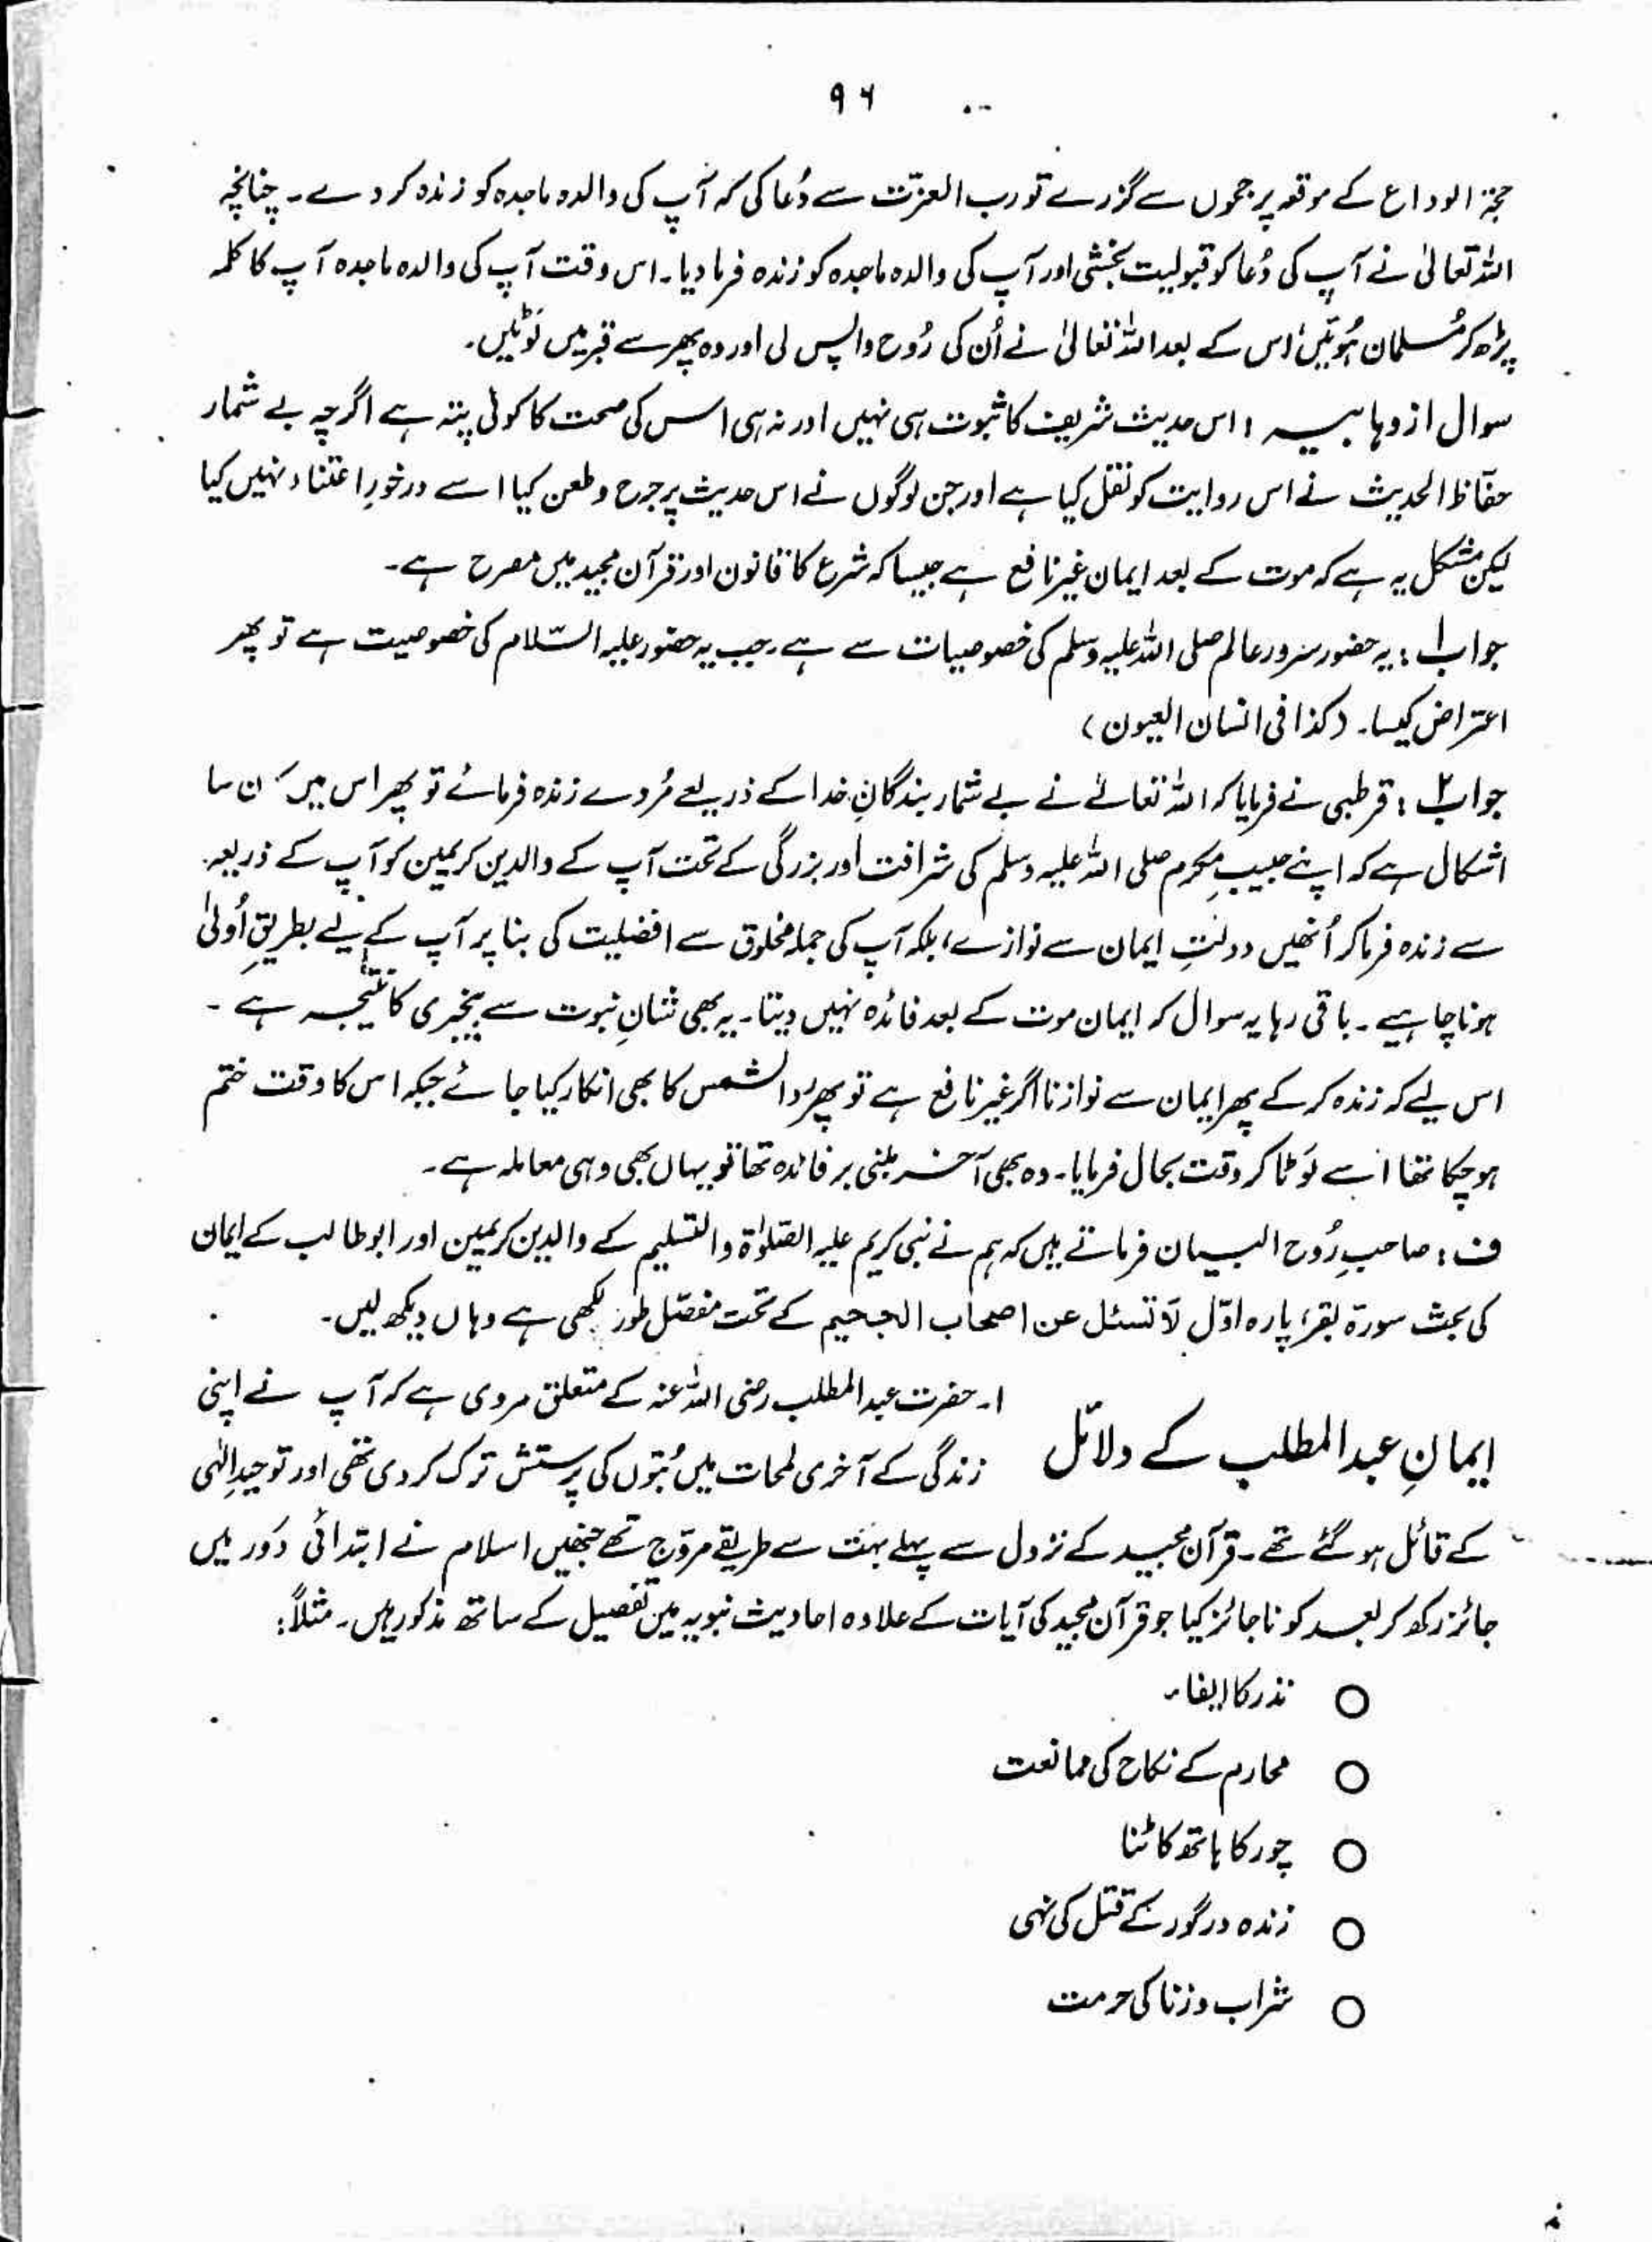 ۹۶
حجۃ الوداع کے موقعہ پر حجوں سے گزرے تو رب العزّت سے دُعا کی کہ آپ کی والدہ ماجدہ کو زندہ کر دے۔ چنانچہ
اللہ تعالیٰ نے آپ کی دُعا کو قبولیت بخشی اور آپ کی والدہ ماجدہ کو زندہ فرما دیا۔ اس وقت آپ کی والدہ ماجدہ آپ کا کلمہ
پڑھ کر مُسلمان ہُوئیں اس کے بعد اللہ تعالیٰ نے اُن کی رُوح واپس لی اور وہ پھر سے قبر میں لَوٹیں۔
سوال از وہابیہ : اس حدیث شریف کا ثبوت ہی نہیں اور نہ ہی اس کی صحت کا کوئی پتہ ہے اگرچہ بے شمار
حفّاظ الحدیث نے اس روایت کو نقل کیا ہے اور جن لوگوں نے اس حدیث پر جرح و طعن کیا اسے درخورِ اعتناء نہیں کیا
لیکن مشکل یہ ہے کہ موت کے بعد ایمان غیر نافع ہے جیسا کہ شرع کا قانون اور قرآن مجید میں مصرح ہے۔
جواب ۱ : یہ حضور سرور عالم صلی اللہ علیہ وسلم کی خصوصیات سے ہے۔ جب یہ حضور علیہ السّلام کی خصوصیت ہے تو پھر
اعتراض کیسا۔ (کذا فی انسان العیون)
جواب ۲ : قرطبی نے فرمایا کہ اللہ تعالےٰ نے بے شمار بندگانِ خدا کے ذریعے مُردے زندہ فرمائے تو پھر اس میں کون سا
اشکال ہے کہ اپنے حبیبِ مکرم صلی اللہ علیہ وسلم کی شرافت اور بزرگی کے تحت آپ کے والدین کریمین کو آپ کے ذریعہ
سے زندہ فرما کر اُنھیں دولتِ ایمان سے نوازے، بلکہ آپ کی جملہ مخلوق سے افضلیت کی بنا پر آپ کے لیے بطریقِ اُولیٰ
ہونا چاہیے۔ باقی رہا یہ سوال کہ ایمان موت کے بعد فائدہ نہیں دیتا۔ یہ بھی شانِ نبوت سے بیخبری کا نتیجہ ہے۔
اس لیے کہ زندہ کر کے پھر ایمان سے نوازنا اگر غیر نافع ہے تو پھر ردّ الشمس کا بھی انکار کیا جائے جبکہ اس کا وقت ختم
ہو چکا تھا اُسے لَوٹا کر وقت بحال فرمایا۔ وہ بھی آخر مبنی بر فائدہ تھا تو یہاں بھی وہی معاملہ ہے۔
ف : صاحبِ رُوح البیان فرماتے ہیں کہ ہم نے نبی کریم علیہ الصّلوٰۃ والتسلیم کے والدین کریمین اور ابوطالب کے ایمان
کی بحث سورۃ بقرہ پارہ اوّل لَا تسئل عن اصحاب الجحیم کے تحت مفصّل طور لکھی ہے وہاں دیکھ لیں۔
ایمانِ عبدالمطلب کے دلائل
۱۔ حضرت عبدالمطلب رضی اللہ عنہ کے متعلق مروی ہے کہ آپ نے اپنی
زندگی کے آخری لمحات میں بُتوں کی پرستش ترک کر دی تھی اور توحیدِ الٰہی
کے قائل ہو گئے تھے۔ قرآن مجید کے نزول سے پہلے بہت سے طریقے مروّج تھے جنھیں اسلام نے ابتدائی دَور میں
جائز رکھ کر بعد کو ناجائز کیا جو قرآن مجید کی آیات کے علاوہ احادیث نبویہ میں تفصیل کے ساتھ مذکور ہیں۔ مثلاً:
○ نذر کا ایفاء
○ محارم کے نکاح کی ممانعت
○ چور کا ہاتھ کاٹنا
○ زندہ درگور کے قتل کی نہی
○ شراب و زنا کی حرمت